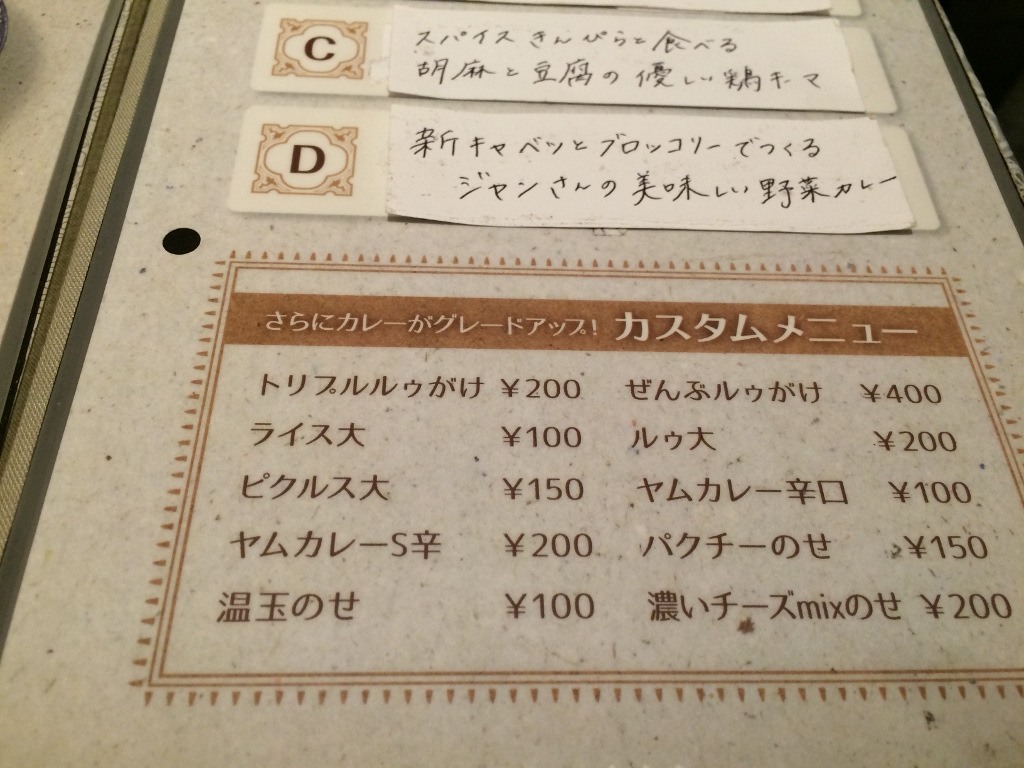 C
スパイスきんぴらと食べる
胡麻と豆腐の優しい鶏キーマ
D
新キャベツとブロッコリーでつくる
ジャンさんの美味しい野菜カレー
さらにカレーがグレードアップ! カスタムメニュー
トリプルルゥがけ ¥200 ぜんぶルゥがけ ¥400
ライス大 ¥100 ルゥ大 ¥200
ピクルス大 ¥150 ヤムカレー辛口 ¥100
ヤムカレーS辛 ¥200 パクチーのせ ¥150
温玉のせ ¥100 濃いチーズmixのせ ¥200